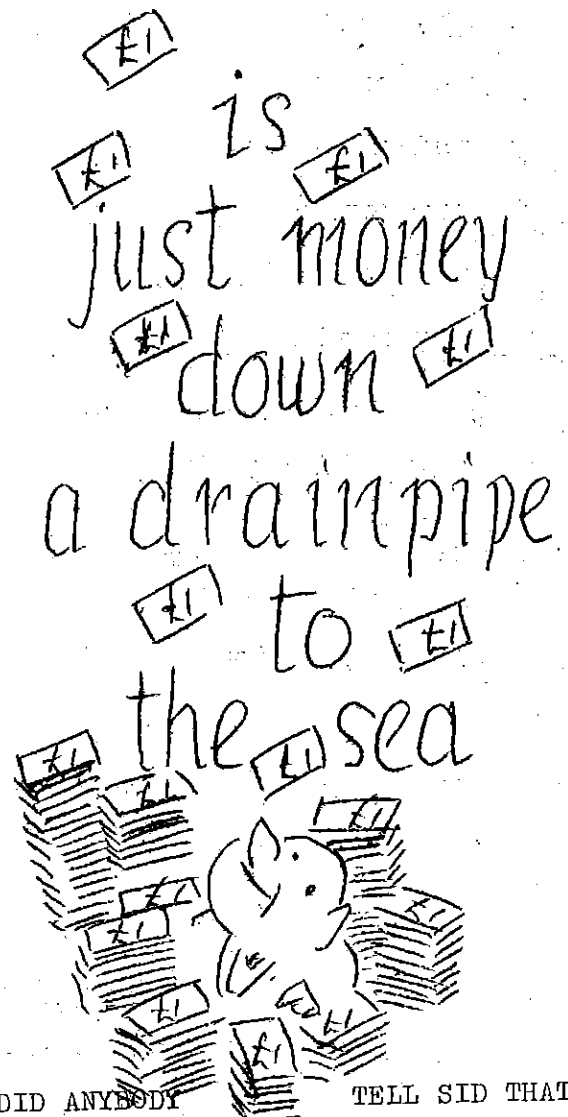 £1
is
£1 £1
just money
£1 down £1
a drainpipe
£1 to £1
the sea
£1 £1
£1 £1
£1 £1
£1
£1
£1 £1
DID ANYBODY TELL SID THAT